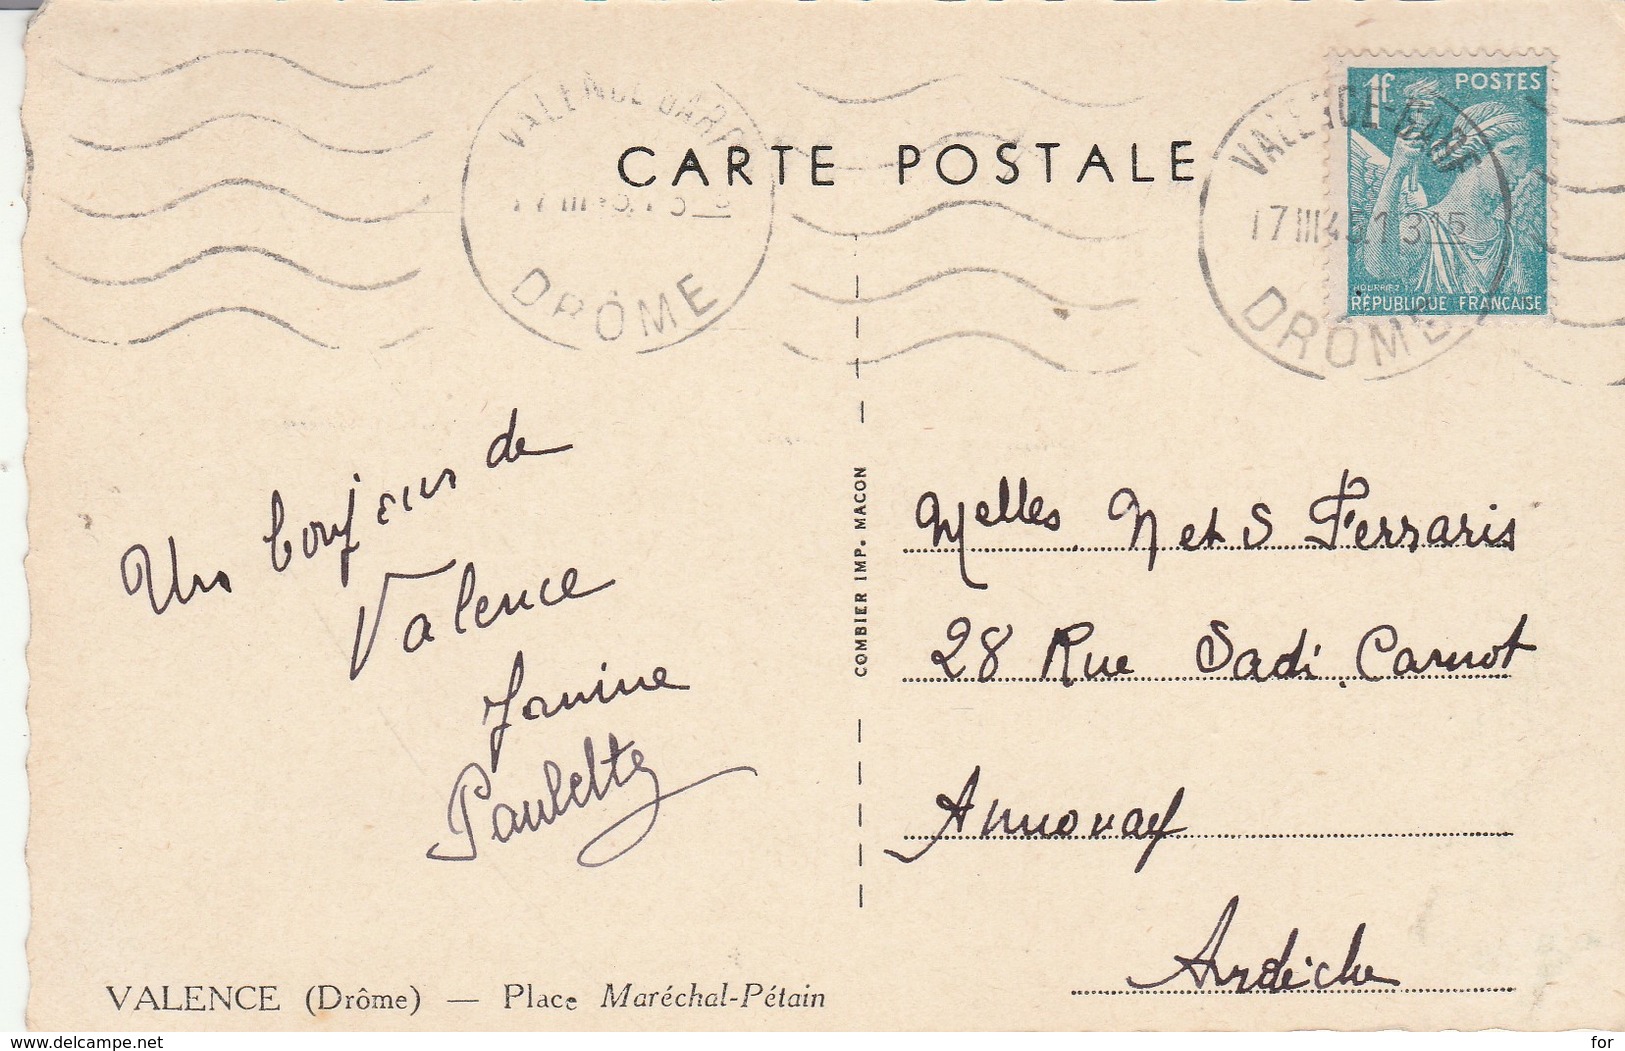 VALENCE GARE
DRÔME
CARTE POSTALE
1F POSTES
RÉPUBLIQUE FRANÇAISE
VALENCE-GARE
17 III 45 1315
DRÔME
Un bonjour de
Valence
Janine
Paulette
COMBIER IMP. MACON
Melles N et S Ferraris
28 Rue Sadi Carnot
Annonay
Ardèche
VALENCE (Drôme) — Place Maréchal-Pétain
www.delcampe.net
for